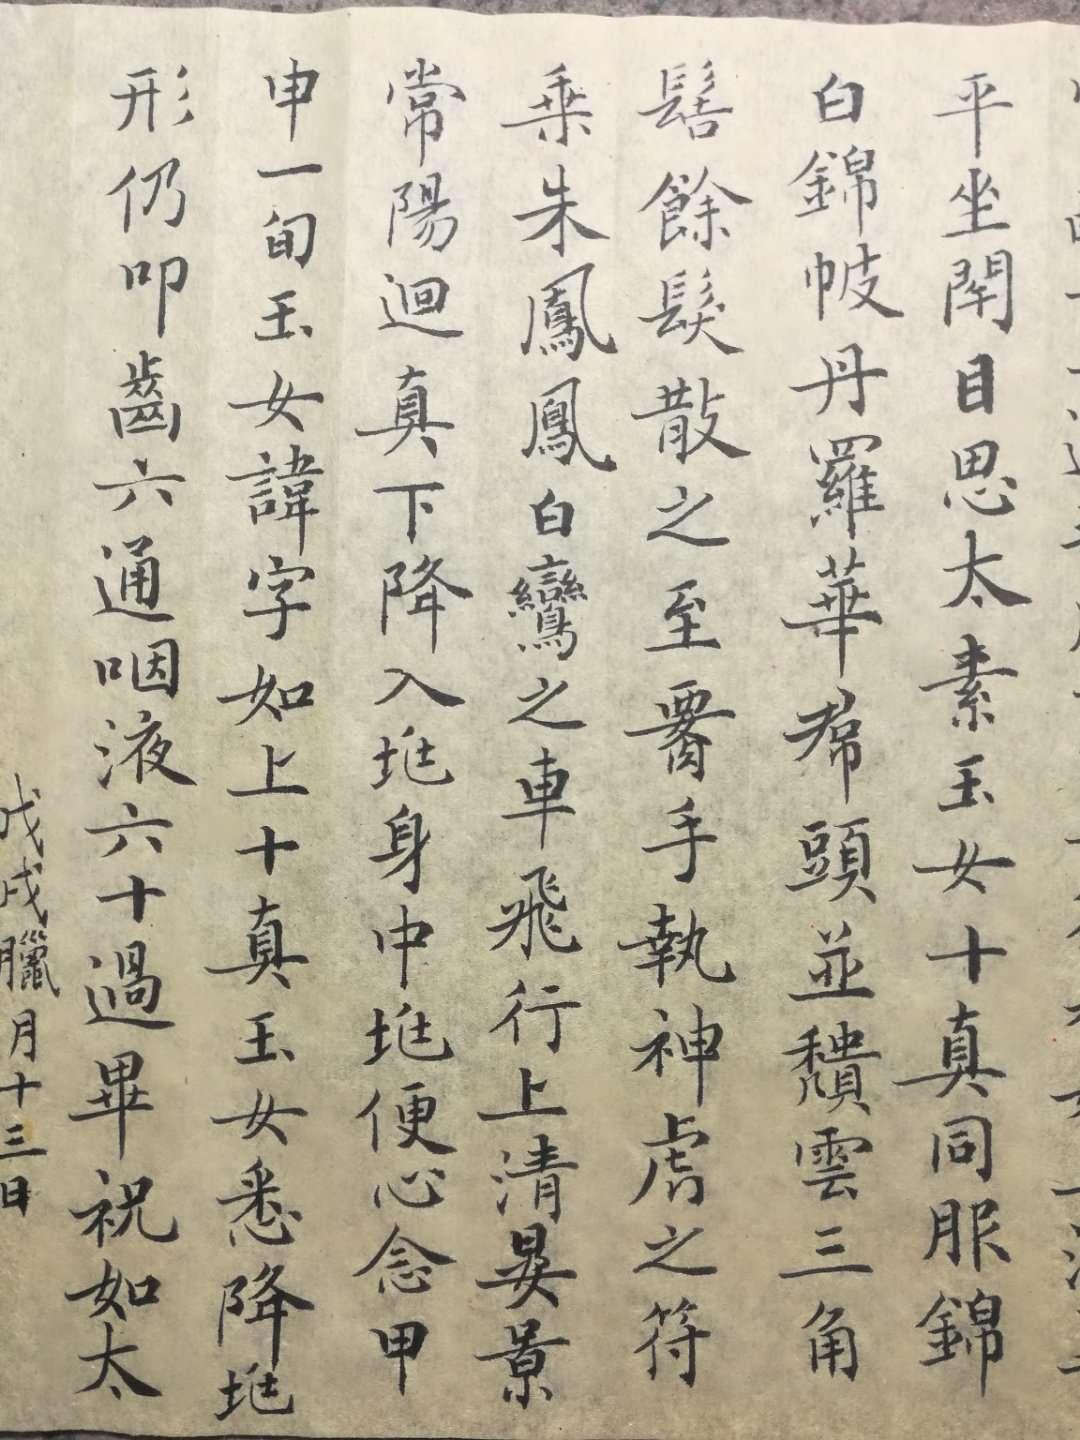 平坐閇目思太素玉女十真同服錦
白錦帔丹羅華帬頭並穨雲三角
髻餘髮散之至𦝫手執神虎之符
乗朱鳳鳳白鸞之車飛行上清晏景
常陽迴真下降入𡉏身中𡉏便心念甲
申一旬玉女諱字如上十真玉女悉降𡉏
形仍叩齒六通咽液六十過畢祝如太
戊戌臘月十三日